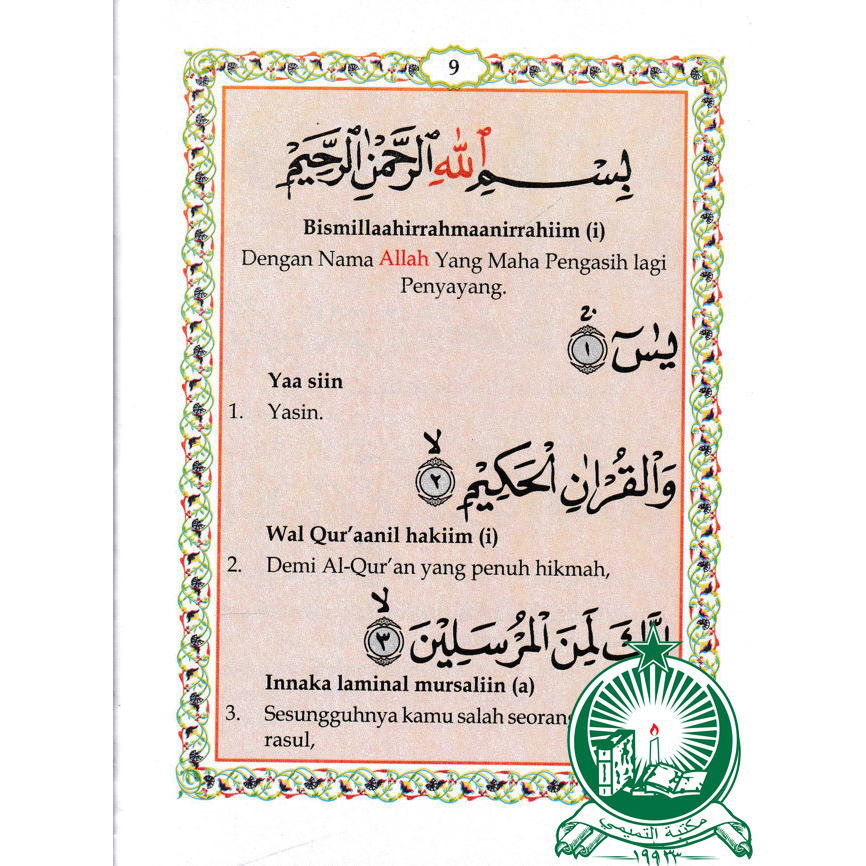 9
بِسْمِ اللّٰهِ الرَّحْمٰنِ الرَّحِيْمِ
Bismillaahirrahmaanirrahiim (i)
Dengan Nama Allah Yang Maha Pengasih lagi
Penyayang.
يٰسٓ ۚ ١
Yaa siin
1. Yasin.
وَالْقُرْاٰنِ الْحَكِيْمِ ۙ ٢
Wal Qur’aanil hakiim (i)
2. Demi Al-Qur’an yang penuh hikmah,
اِنَّكَ لَمِنَ الْمُرْسَلِيْنَ ۙ ٣
Innaka laminal mursaliin (a)
3. Sesungguhnya kamu salah seorang
rasul,
مكتبة التميمي
١٩٩٣